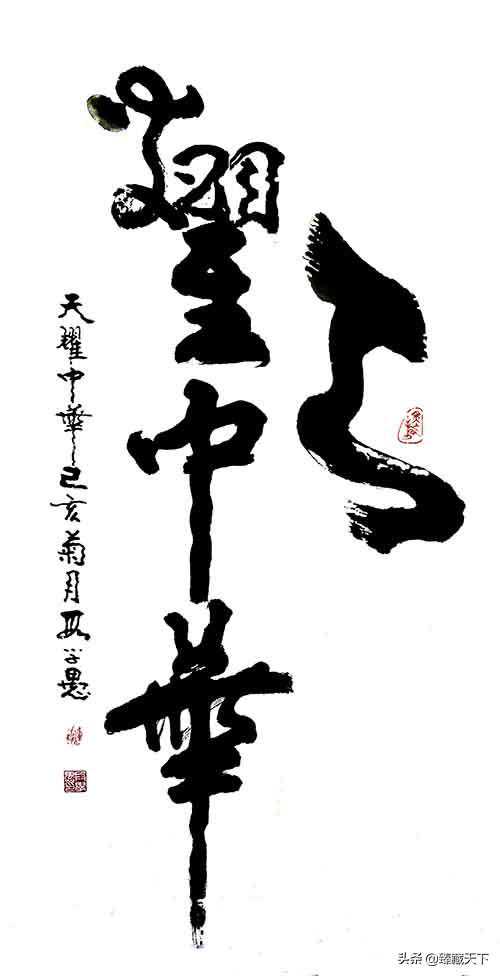 天
耀中華
天耀中華己亥菊月段学愚
头条 @臻藏天下